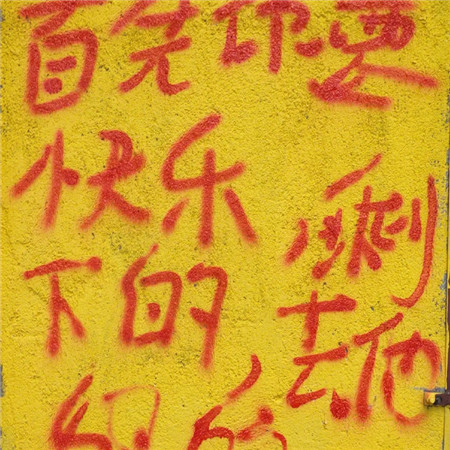 首先你要
快乐 剩
下的 去他